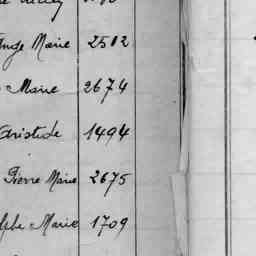 Ange Marie 2512
Marie 2674
Aristide 1494
Pierre Marie 2675
Marie 1709